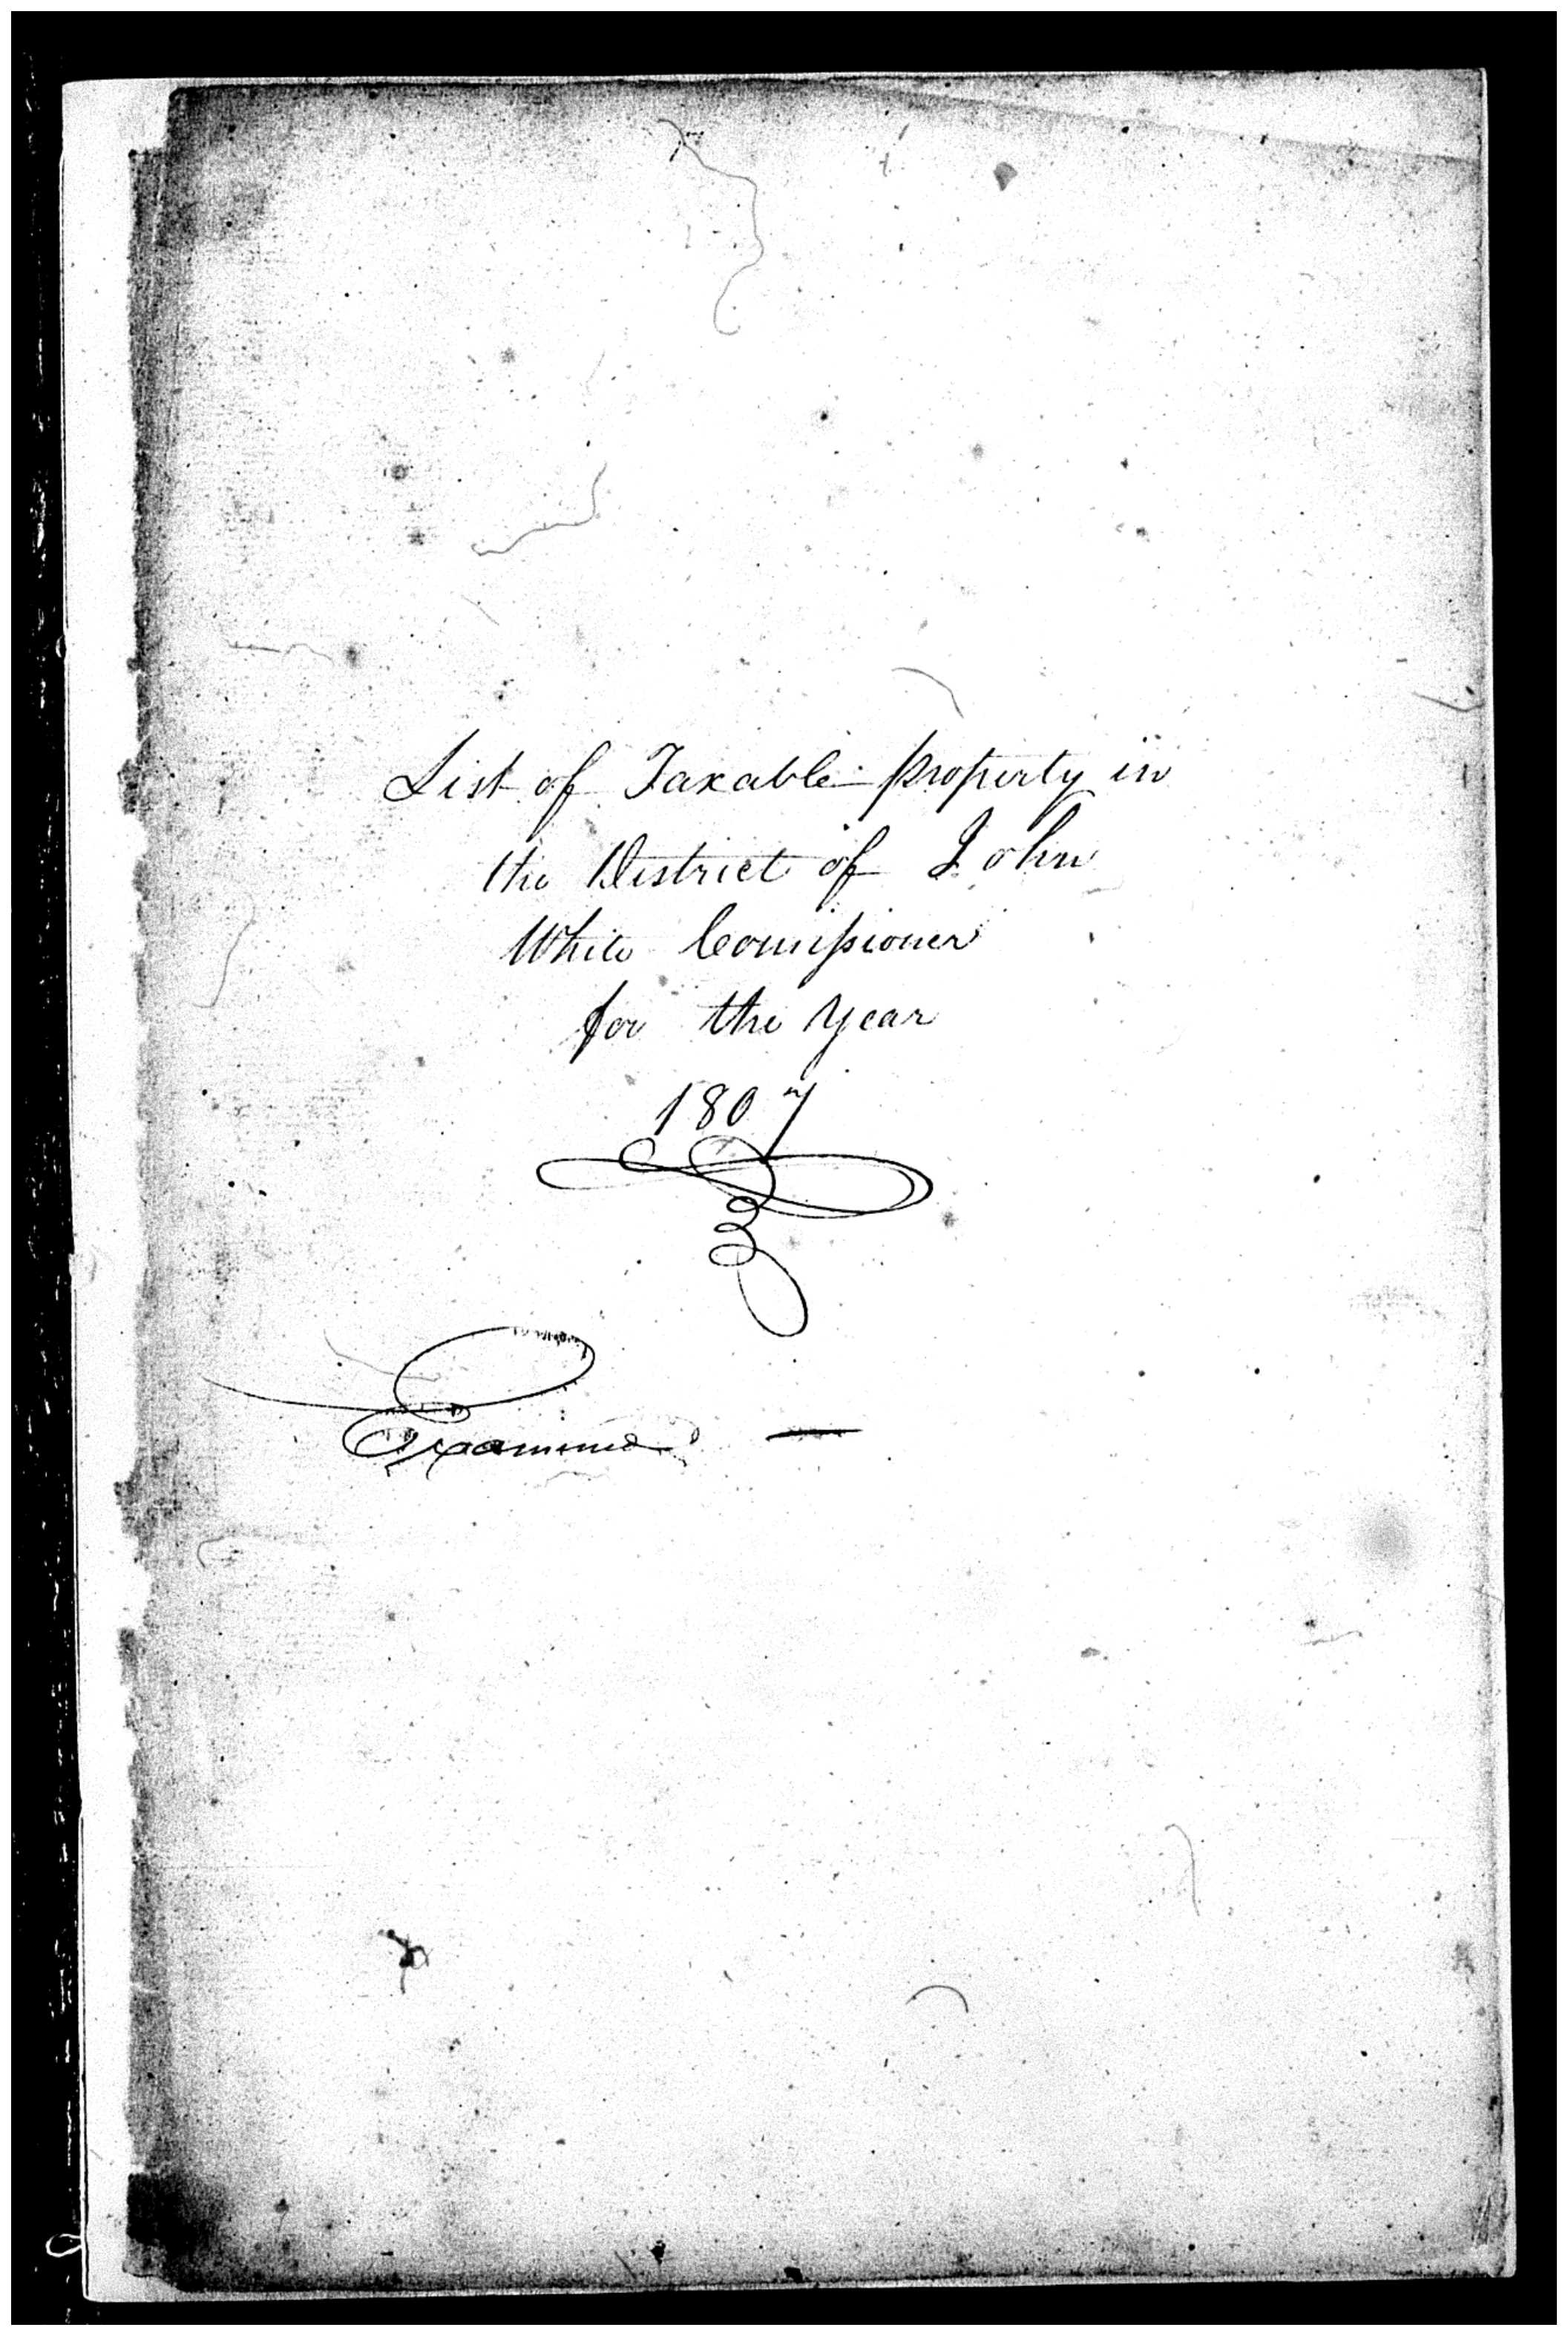 List of Taxable property in
the District of John
White Comissioner
for the year
1807
Examined —